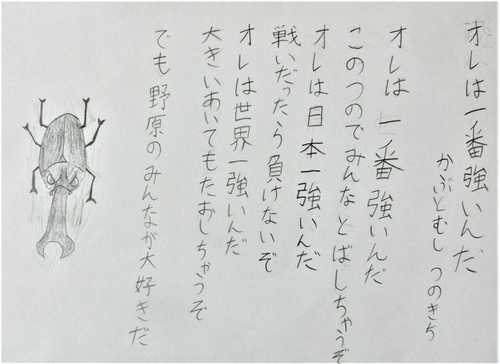 オレは一番強いんだ
かぶとむし つのきち
オレは 一番強いんだ
このつのでみんなとばしちゃうぞ
オレは日本一強いんだ
戦いだったら負けないぞ
オレは世界一強いんだ
大きいあいてもたおしちゃうぞ
でも野原のみんなが大好きだ